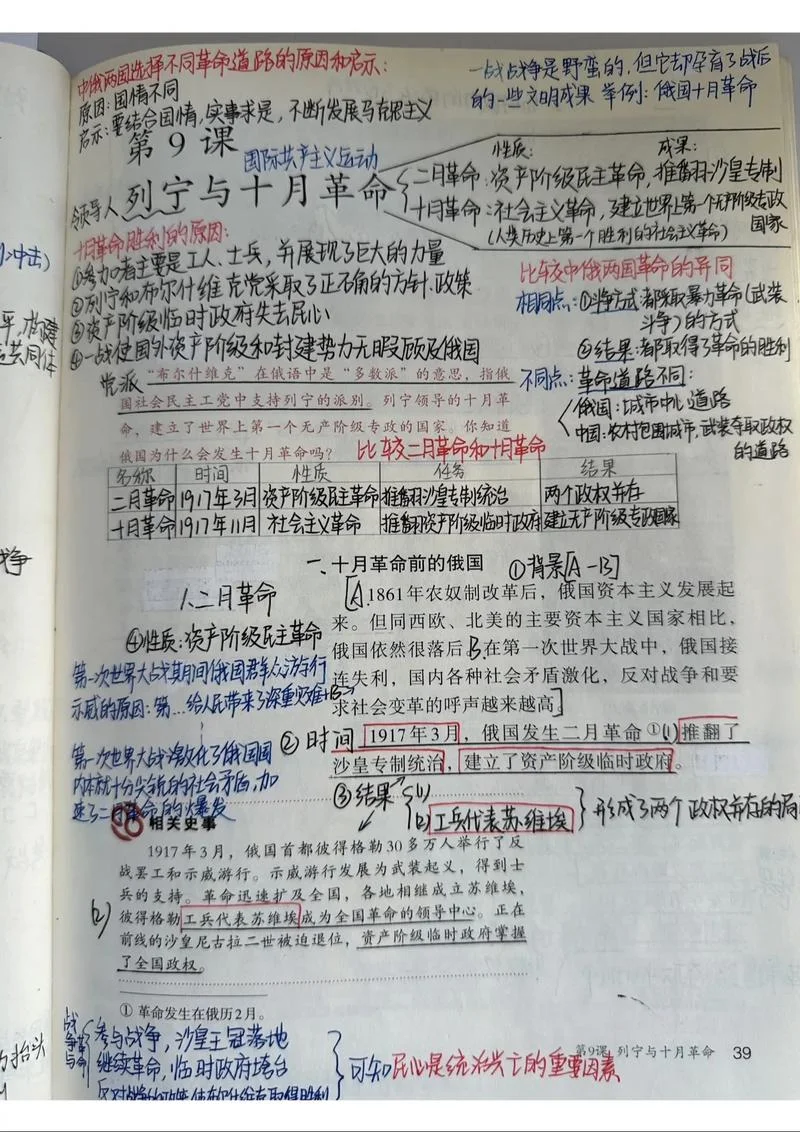 中俄两国选择不同革命道路的原因和启示：
原因：国情不同
启示：要结合国情，实事求是，不断发展马克思主义
一战战争是野蛮的，但它却孕育了战后
的一些文明成果 举例：俄国十月革命
第9课
国际共产主义运动
领导人 列宁与十月革命
性质： 成果：
二月革命：资产阶级民主革命，推翻沙皇专制
十月革命：社会主义革命，建立世界上第一个无产阶级专政
国家
(人类历史上第一个胜利的社会主义革命)
十月革命胜利的原因：
①参加者主要是工人、士兵，并展现了巨大的力量
②列宁和布尔什维克党采取了正确的方针、政策
③资产阶级临时政府失去民心
④一战使国外资产阶级和封建势力无暇顾及俄国
比较中俄两国革命的异同
相同点：①斗争方式：都采取暴力革命(武装
斗争)的方式
②结果：都取得了革命的胜利
不同点：革命道路不同：
俄国：城市中心道路
中国：农村包围城市，武装夺取政权
的道路
党派
“布尔什维克”在俄语中是“多数派”的意思，指俄
国社会民主工党中支持列宁的派别。列宁领导的十月革
命，建立了世界上第一个无产阶级专政的国家。你知道
俄国为什么会发生十月革命吗？
比较二月革命和十月革命
名称 时间 性质 任务 结果
二月革命 1917年3月 资产阶级民主革命 推翻沙皇专制统治 两个政权并存
十月革命 1917年11月 社会主义革命 推翻资产阶级临时政府 建立无产阶级专政国家
一、十月革命前的俄国
①背景[A-B]
1.二月革命
④性质：资产阶级民主革命
[A.1861年农奴制改革后，俄国资本主义发展起
来。但同西欧、北美的主要资本主义国家相比，
俄国依然很落后。B.在第一次世界大战中，俄国接
连失利，国内各种社会矛盾激化，反对战争和要
求社会变革的呼声越来越高。]
第一次世界大战期间俄国群众游行
示威的原因：第…给人民带来了深重灾难+B
第一次世界大战激化了俄国国
内本就十分尖锐的社会矛盾，加
速了二月革命的爆发
②时间 1917年3月，俄国发生二月革命①(1)推翻了
沙皇专制统治，建立了资产阶级临时政府。
③结果 (1)
(2)工兵代表苏维埃 形成了两个政权并存的局
相关史事
1917年3月，俄国首都彼得格勒30多万人举行了反
战罢工和示威游行。示威游行发展为武装起义，得到士
兵的支持。革命迅速扩及全国，各地相继成立苏维埃，
(2) 彼得格勒工兵代表苏维埃成为全国革命的领导中心。正在
前线的沙皇尼古拉二世被迫退位，资产阶级临时政府掌握
了全国政权。
① 革命发生在俄历2月。
战争与革命
参与战争，沙皇王冠落地
继续革命，临时政府垮台
可知民心是统治兴亡的重要因素
第9课 列宁与十月革命 39
冲击)
共同体
争
抬头